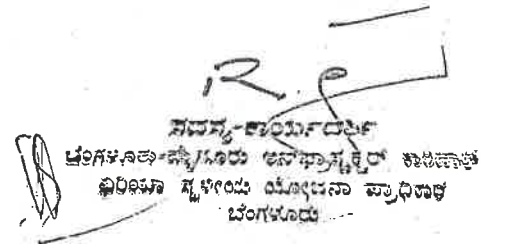 ಸದಸ್ಯ-ಕಾರ್ಯದರ್ಶಿ
ಬೆಂಗಳೂರು-ಮೈಸೂರು ಇನ್‌ಫ್ರಾಸ್ಟ್ರಕ್ಚರ್ ಕಾರಿಡಾರ್
ಏರಿಯಾ ಸ್ಥಳೀಯ ಯೋಜನಾ ಪ್ರಾಧಿಕಾರ
ಬೆಂಗಳೂರು